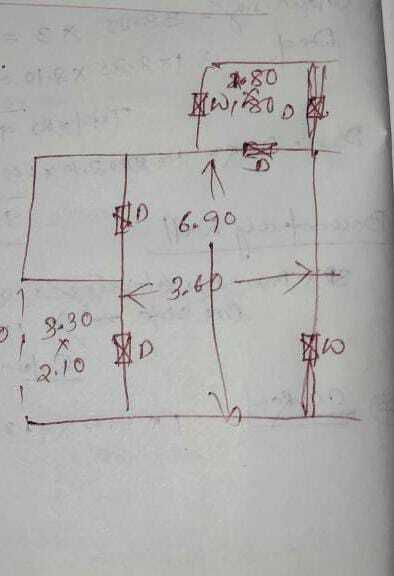 2.80
x
W 1.80 D
D
D
6.90
3.60
3.30
x
2.10
D
W